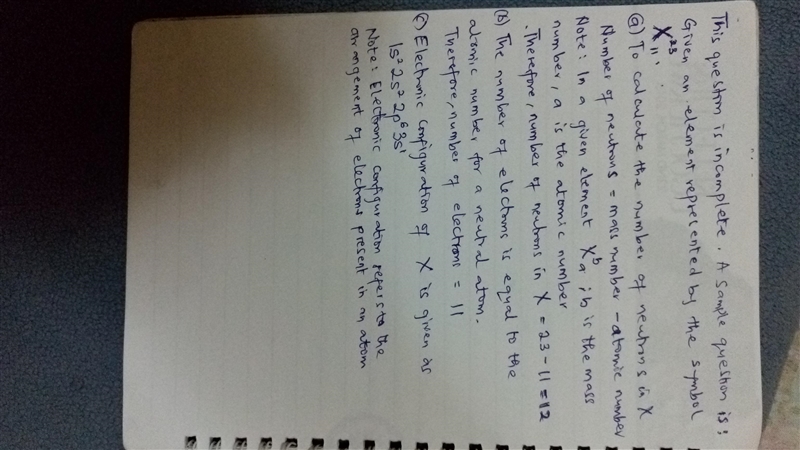 This question is incomplete. A sample question is:
Given an element represented by the symbol
X²³₁₁.
(a) To calculate the number of neutrons in X
Number of neutrons = mass number - atomic number
Note: In a given element Xᵇₐ; b is the mass
number, a is the atomic number
. Therefore, number of neutrons in X = 23-11=12
(b) The number of electrons is equal to the
atomic number for a neutral atom.
Therefore, number of electrons = 11
(c) Electronic configuration of X is given as
1s² 2s² 2p⁶ 3s¹
Note: Electronic configuration refers to the
arrangement of electrons present in an atom